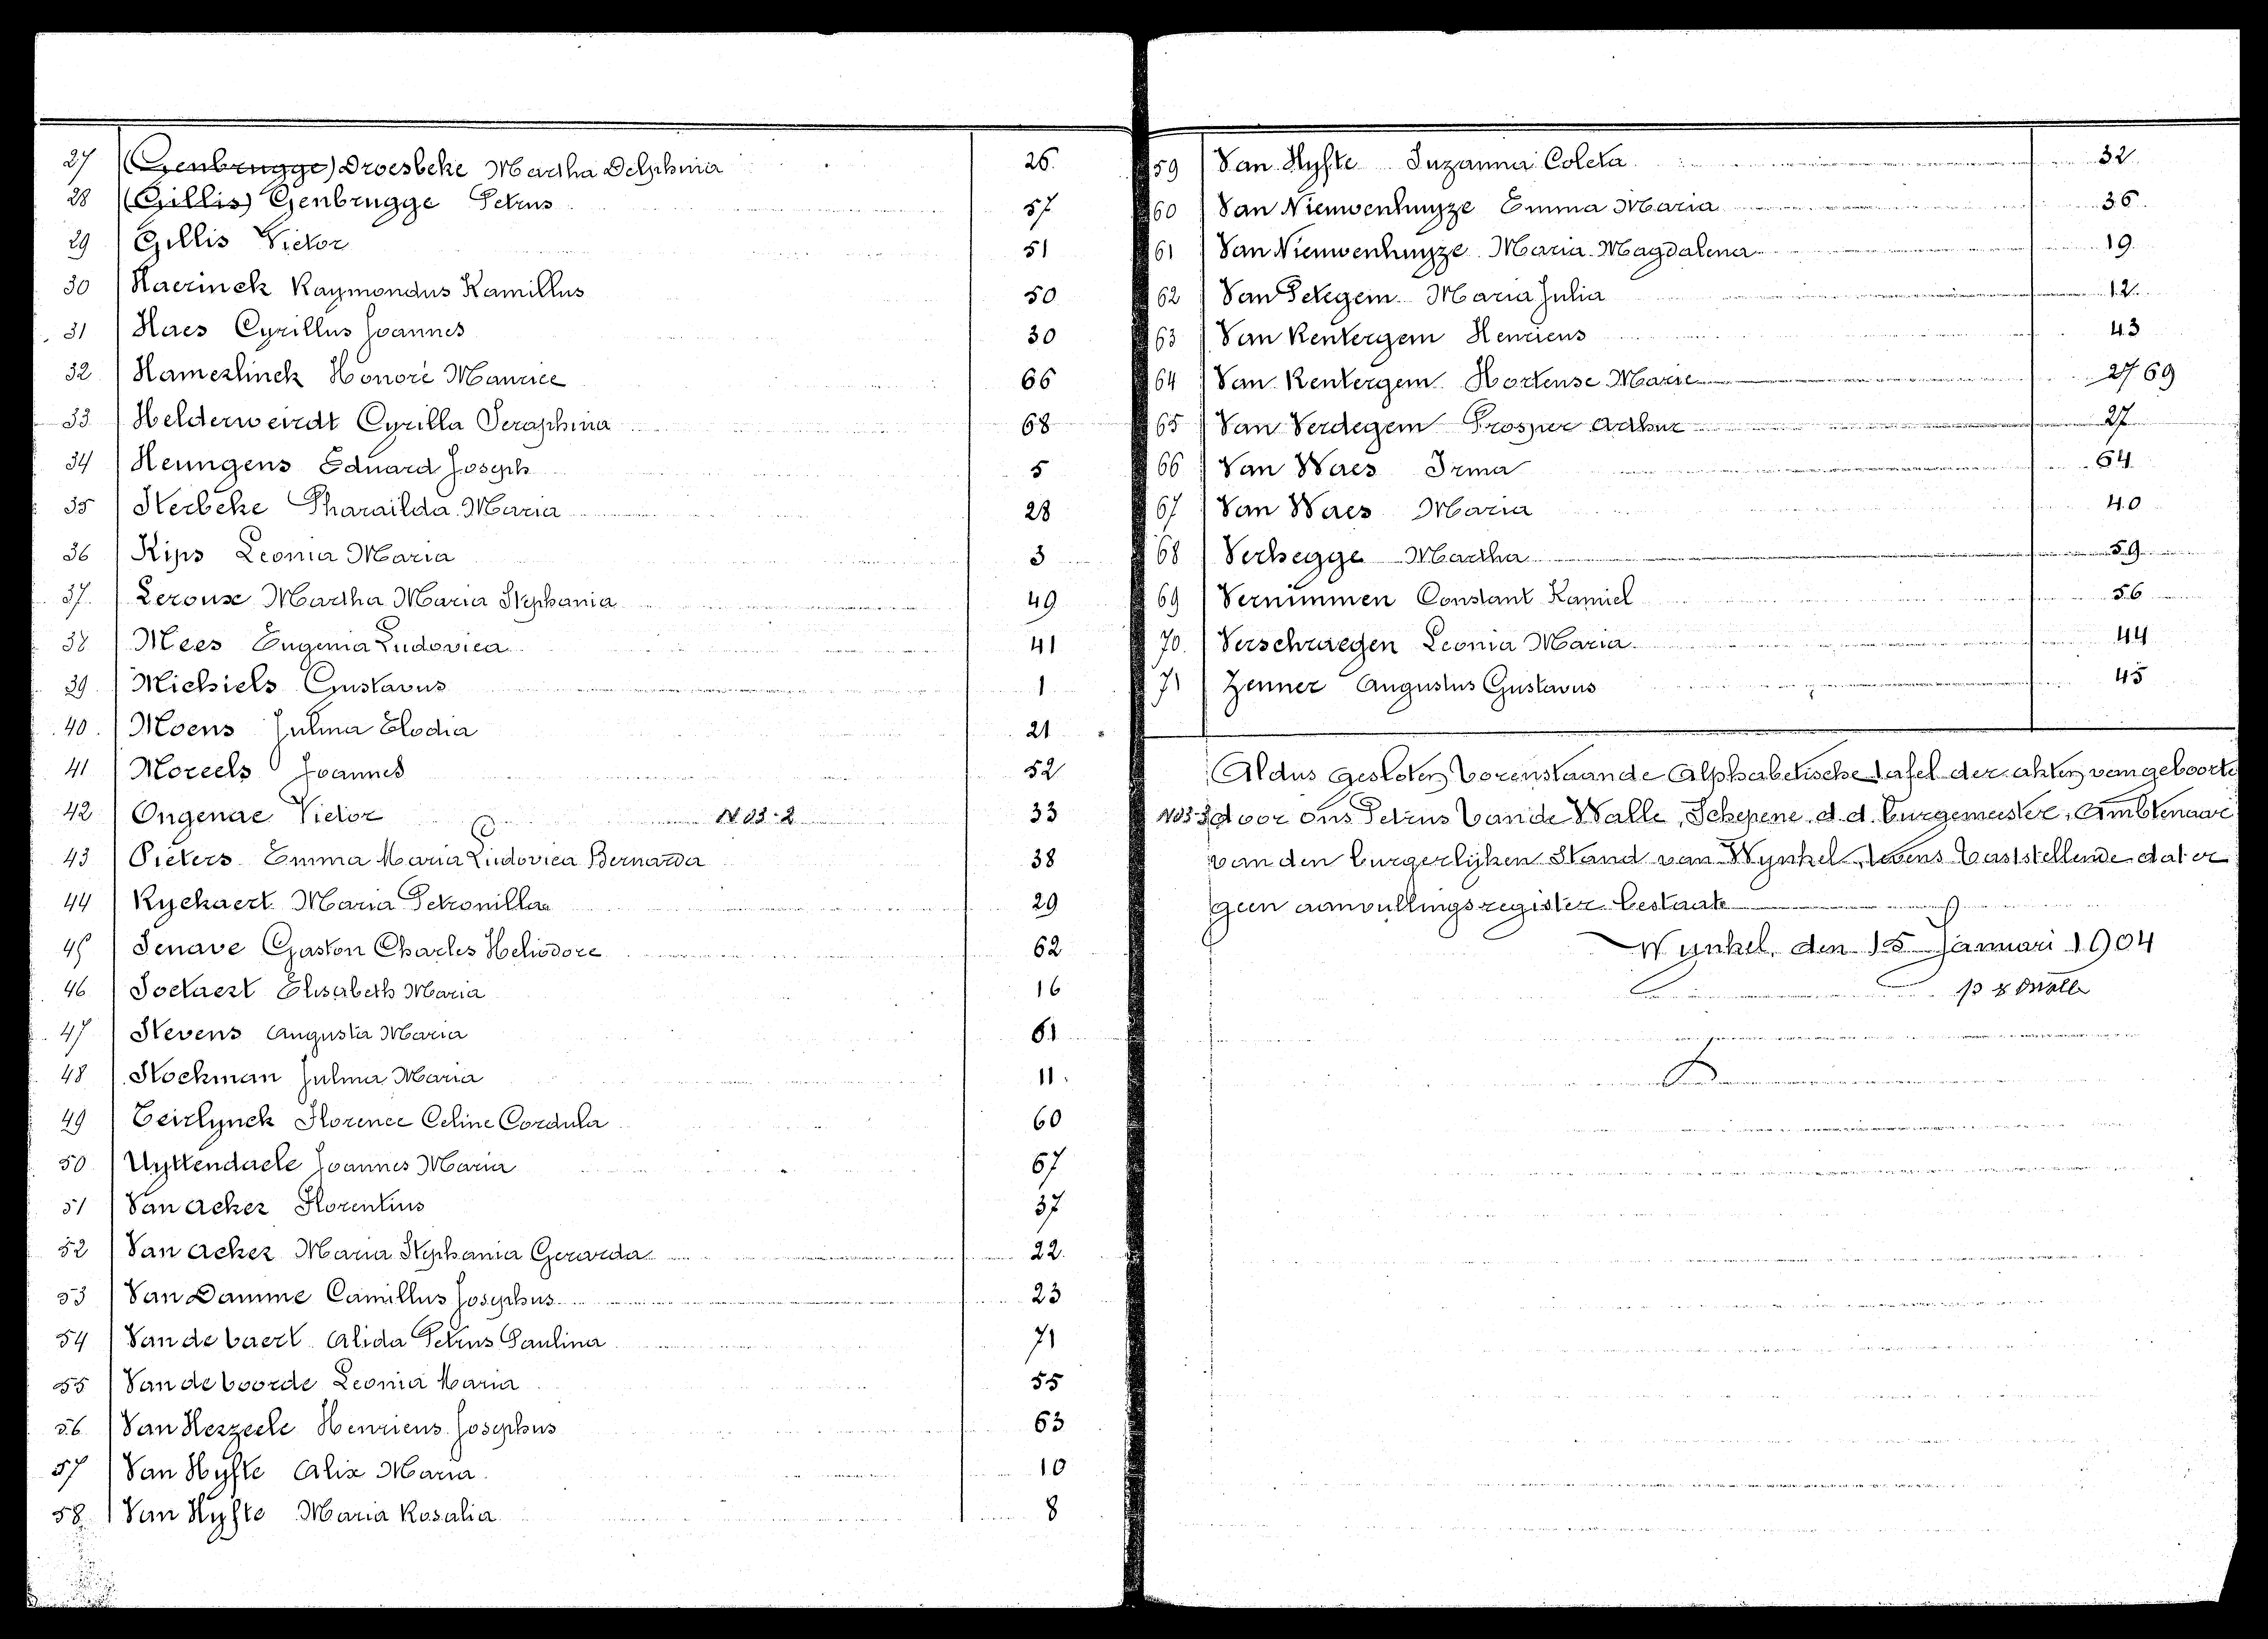 27 (Genbrugge) Droesbeke Martha Delphina 26.
28 (Gillis) Genbrugge Petrus 57
29 Gillis Victor 51
30 Haerinck Raymondus Kamillus 50
31 Haes Cyrillus Joannes 30
32 Hamerlinck Honoré Maurice 66
33 Helderweirdt Cyrilla Seraphina 68
34 Heungens Eduard Joseph 5
35 Kerbeke Pharailda Maria 28
36 Kips Leonia Maria 3
37. Lerouse Martha Maria Stephania 49
38 Mees Eugenia Ludovica 41
39 Michiels Gustavus 1
40. Moens Julma Elodia 21
41 Moreels Joannes 52
42 Ongenae Victor N 33.2 33
43 Pieters Emma Maria Ludovica Bernarda 38
44 Ryckaert Maria Petronilla 29
45 Senave Gaston Charles Heliodore 62
46 Soetaert Elisabeth Maria 16
47 Stevens Augusta Maria 61
48 Stockman Julma Maria 11.
49 Teirlynck Florence Celine Cordula 60
50 Uyttendaele Joannes Maria 67
51 Van Acker Florentius 37
52 Van Acker Maria Stephania Gerarda 22.
53 Van Damme Camillus Josephus 23
54 Van de vaert Alida Petrus Paulina 71
55 Van de voorde Leonia Maria 55
56 Van Herzeele Henricus Josephus 63
57 Van Hyfte Alix Maria 10
58 Van Hyfte Maria Rosalia 8
59 Van Hyfte Suzanna Coleta 32
60 Van Nieuwenhuyze Emma Maria 36
61 Van Nieuwenhuyze Maria Magdalena 19
62 Van Petegem Maria Julia 12
63 Van Rentergem Henricus 43
64 Van Rentergem Hortense Marie 27 69
65 Van Verdegem Prosper Arthur 27
66 Van Waes Irma 64
67 Van Waes Maria 40
68 Verhegge Martha 59
69 Vernimmen Constant Kamiel 56
70. Verschraegen Leonia Maria 44
71 Zenner Augustus Gustavus 45
Aldus gesloten vorenstaande Alphabetische tafel der akten van geboorte
door ons Petrus Van de Walle, Schepene d.d. burgemeester, Ambtenaar
van den burgerlijken Stand van Wynkel, tevens vaststellende dat er
geen aanvullingsregister bestaat
Wynkel, den 15 Januari 1904